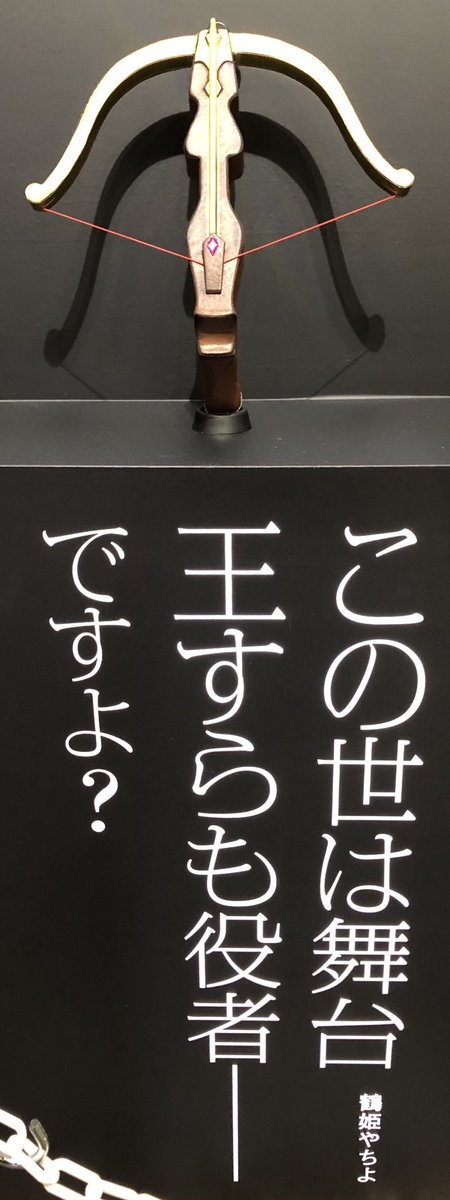 この世は舞台
王すらも役者――
ですよ?
鶴姫やちよ